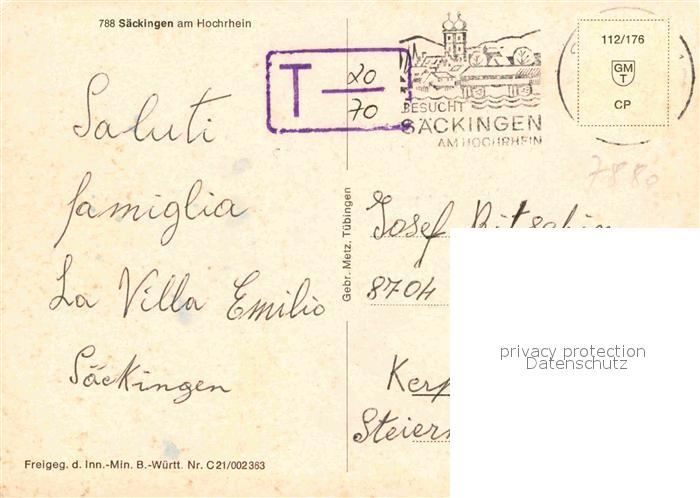 788 Säckingen am Hochrhein
T 20
70
BESUCHT
SÄCKINGEN
AM HOCHRHEIN
112/176
GM
T
CP
7880
Saluti
famiglia
La Villa Emilio
Säckingen
Gebr. Metz, Tübingen
Josef
8704
Steier
privacy protection
Datenschutz
Freigeg. d. Inn.-Min. B.-Württ. Nr. C 21/002363